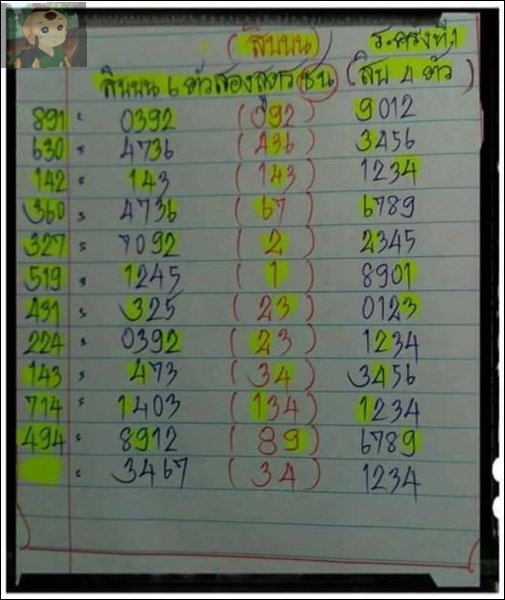 (สิบบน) ระครั้งที่ 1
สิบบน 6 ตัวสองสูตรชน (สิบ 4 ตัว)
891 : 0392 (092) 9012
630 : 4736 (436) 3456
142 : 143 (143) 1234
360 : 4736 (67) 6789
327 : 7092 (2) 2345
519 : 1245 (1) 8901
431 : 325 (23) 0123
224 : 0392 (23) 1234
143 : 473 (34) 3456
714 : 1403 (134) 1234
494 : 8912 (89) 6789
: 3467 (34) 1234